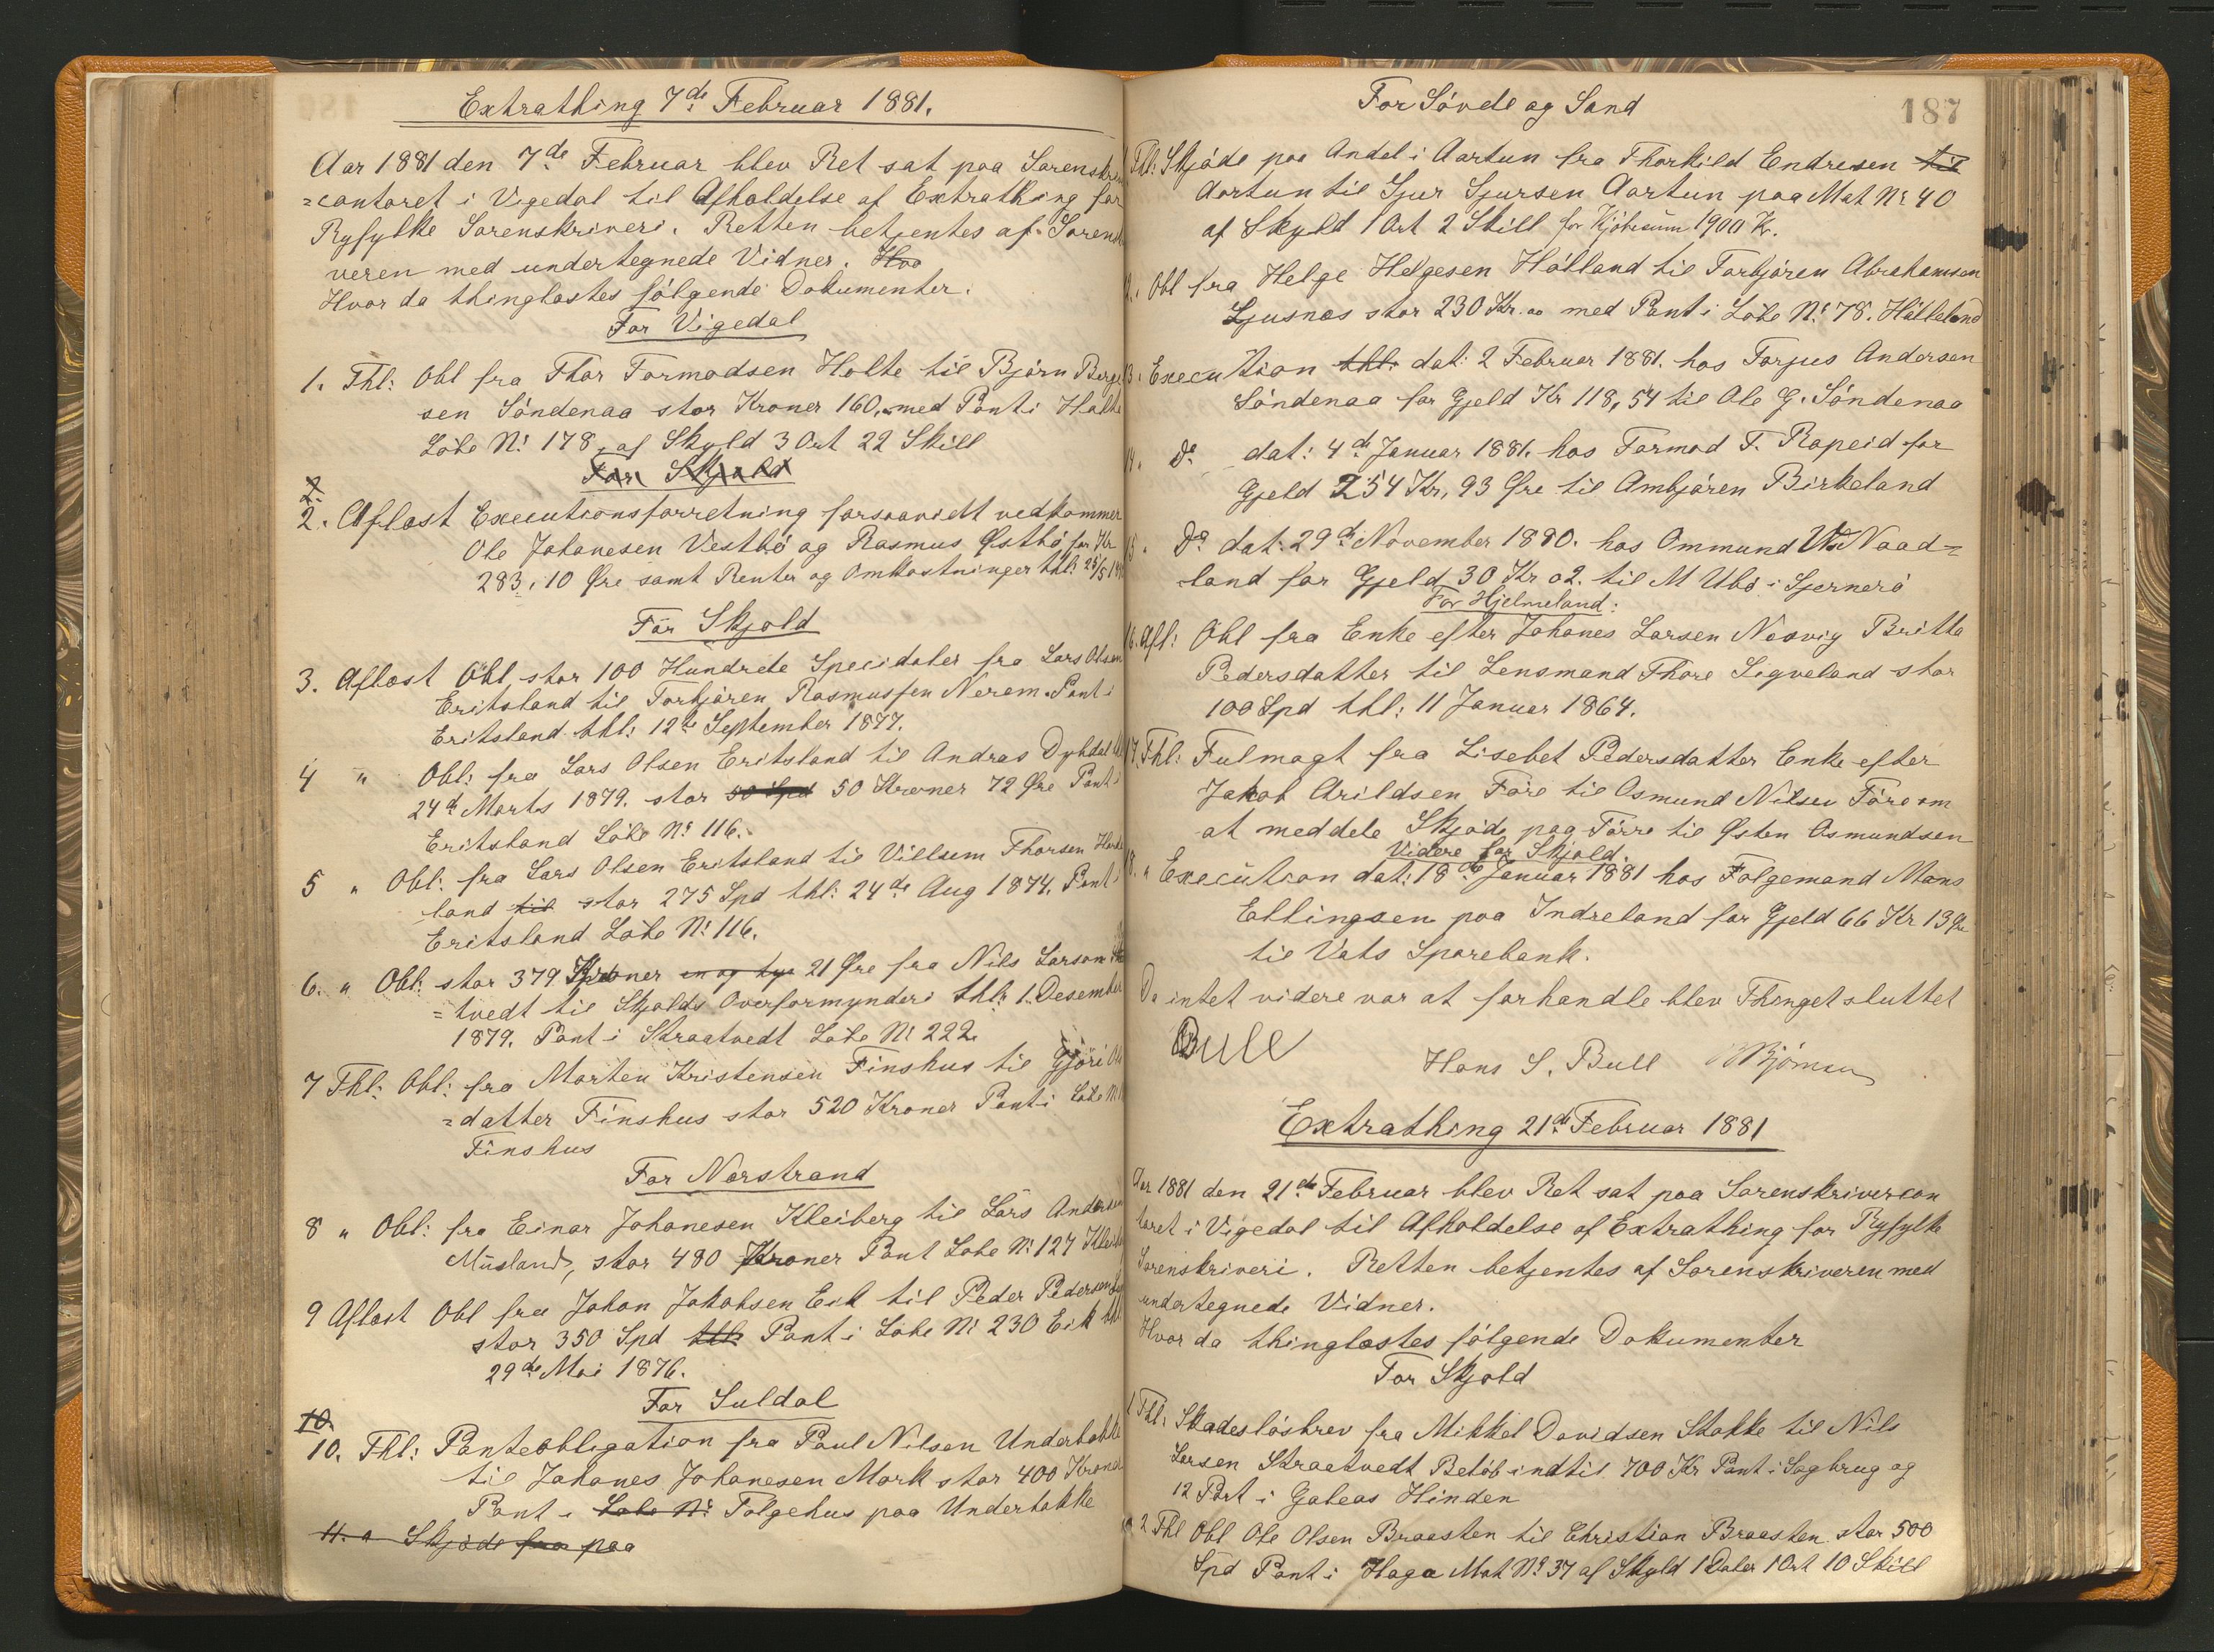 Extrathing 7de Februar 1881.
Aar 1881 den 7de Februar blev Ret sat paa Sorenskri
=contoret i Vigedal til Afholdelse af Extrathing for
Ryfylke Sorenskriveri. Retten betjentes af Sorensk
veren med undertegnede Vidner. Hvo
Hvor da thinglæstes følgende Dokumenter.
For Vigedal
1. Thl: Obl fra Thor Tormodsen Holte til Bjørn Berge
sen Søndenaa stor Kroner 160, med Pant i Holte
Løbe No 178, af Skyld 3 Ort 22 Skill
For Skjold
2.
2. Aflæst Executionsforretning forsaavidt vedkommer
Ole Johanesen Vestbø og Rasmus Østbø for Kr
283,10 Øre samt Renter og Omkostninger thl: 25/5 18
For Skjold
3. Aflæst Obl stor 100 Hundrede Specidaler fra Lars Olsen
Eritsland til Torbjøren Rasmussen Nerem. Pant i
Eritsland thl: 12te September 1877.
4 " Obl: fra Lars Olsen Eritsland til Andras Dybdal
24de Marts 1879. stor 50 Spd 50 Kroner 72 Øre Pant i
Eritsland Løbe No 116.
5 " Obl: fra Lars Olsen Eritsland til Villsem Thorsen
land til stor 275 Spd thl: 24de Aug 1874. Pant i
Eritsland Løbe No 116.
6. " Obl: stor 379 Kroner en og tyve 21 Øre fra Nils Larsen
=tvedt til Skjolds Overformynderi thl: 1. Desember
1879. Pant i Straatvedt Løbe No 222.
7 Thl: Obl: fra Morten Kristensen Finshus til Gjøri
=datter Finshus stor 520 Kroner Pant i Løbe No
Finshus
For Nerstrand
8 " Obl: fra Einar Johanesen Kleiberg til Lars Andersen
Musland, stor 480 Kroner Pant Løbe No 127
9 Aflæst Obl fra Johan Jakobsen Eik til Peder Pedersen
stor 350 Spd thl: Pant i Løbe No 230 Eik thl:
29de Mai 1876.
For Suldal
10.
10. Thl: Panteobligation fra Paul Nilsen Underbakke
til Johanes Johanesen Mork stor 400 Kroner
Pant i Løbe No Folgehus paa Underbakke
11. " Skjøde fra paa
For Søvde og Sand
187
Thl: Skjøde paa Andel i Aartun fra Thorkild Endresen til
Aartun til Sjur Sjursen Aartun paa Mat No 40
af Skyld 1 Ort 2 Skill for Kjøbesum 1900 Kr.
Obl fra Helge Helgesen Hølland til Torbjøren Abrahamsen
Ljusnes stor 230 Kr. med Pant i Løbe No 78. Hølleland
Execution thl: dat: 2 Februar 1881. hos Torjus Andersen
Søndenaa for Gjeld Kr 118,54 til Ole G. Søndenaa
Do dat: 4de Januar 1881. hos Tormod T. Rapeid for
Gjeld 254 Kr, 93 Øre til Ambjøren Birkeland
Do dat: 29de November 1880. hos Ommund Naad=
land for Gjeld 30 Kr 02. til M Ubø i Sjernerø
For Hjelmeland:
16. Afl: Obl fra Enke efter Johanes Larsen Nosvig Britta
Pedersdatter til Lensmand Thore Sigveland stor
100 Spd thl: 11 Januar 1864.
17. Thl: Fulmagt fra Lisebet Pedersdatter Enke efter
Jakob Arildsen Føre til Osmund Nilsen Føre om
at meddele Skjøde paa Førre til Østen Osmundsen
Videre for Skjold.
18. " Execution dat: 18de Januar 1881 hos Folgemand Mons
Ellingsen paa Indreland for Gjeld 66 Kr 13 Øre
til Vats Sparebank.
Da intet videre var at forhandle blev Thinget sluttet
Bull
Hans S. Bull
Extrathing 21de Februar 1881
Aar 1881 den 21de Februar blev Ret sat paa Sorenskrivercon
toret i Vigedal til Afholdelse af Extrathing for Ryfylke
Sorenskriveri. Retten betjentes af Sorenskriveren med
undertegnede Vidner.
Hvor da thinglæstes følgende Dokumenter
For Skjold
1 Thl: Skadesløsbrev fra Mikkel Davidsen Stakke til Nils
Larsen Straatvedt Beløb indtil 700 Kr Pant i Sagbrug og
12 Part i Galeas Hinden
2 Thl Obl Ole Olsen Braasten til Christian Braasten stor 500
Spd Pant i Haga Mat No 37 af Skyld 1 Daler 1 Ort 10 Skill